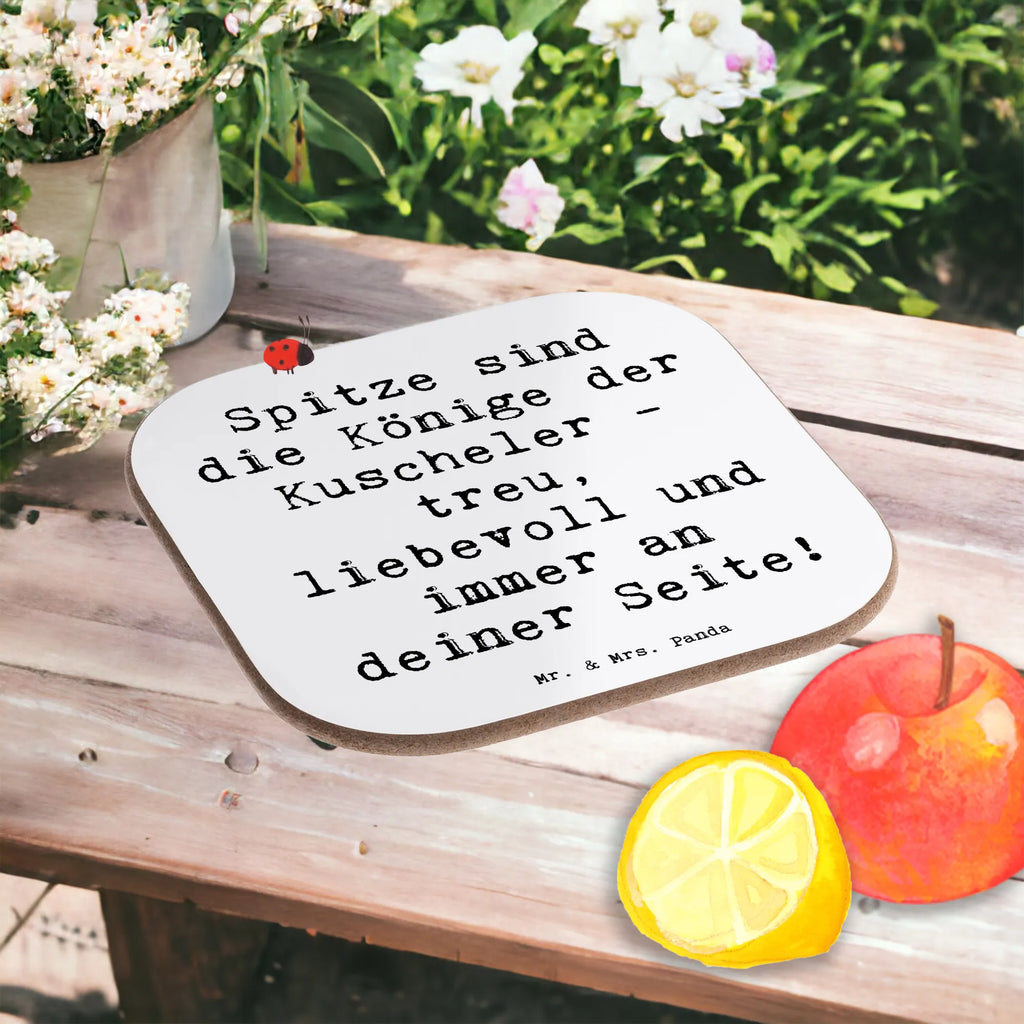 Spitze sind
die Könige der
Kuscheler –
treu,
liebevoll und
immer an
deiner Seite!
Mr. & Mrs. Panda